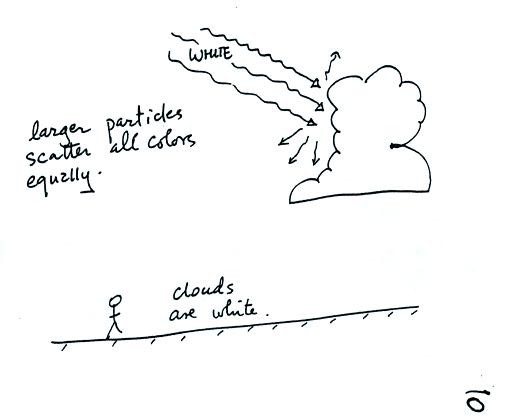 WHITE
larger particles
scatter all colors
equally.
clouds
are white.
10